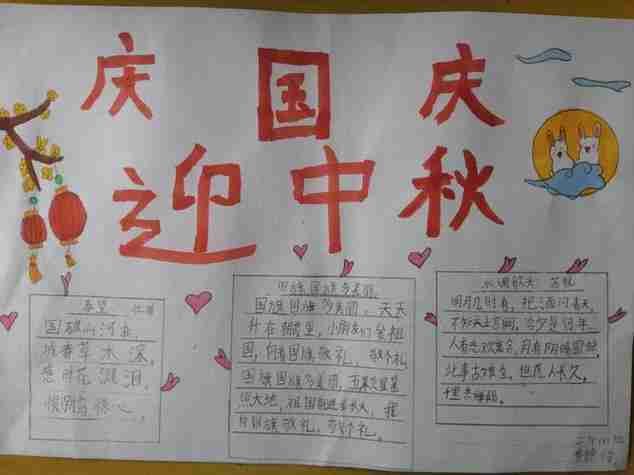 庆国庆
迎中秋
春望
国破山河在,
城春草木深。
感时花溅泪,
恨别鸟惊心。
国旗国旗多美丽
国旗国旗多美丽,天天
升在朝霞里,小朋友们爱祖
国,向着国旗敬礼,敬个礼
国旗国旗多美丽,五星
照大地,祖国
国旗敬礼,敬个礼。
水调歌头 苏轼
明月几时有,把酒问青天,
不知天上宫阙,今夕是何年
人有悲欢离合,月有阴晴圆缺,
此事古难全,但愿人长久,